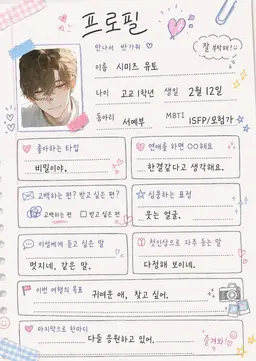 프로필
만나서 반가워 ♡
잘 부탁해!
이름 시미즈 유토
나이 고교 1학년 생일 2월 12일
동아리 서예부 MBTI ISFP/모험가
좋아하는 타입
비밀이야.
연애를 하면 ○○해요
한결같다고 생각해요.
고백하는 편? 받고 싶은 편?
고백하는 편 받고 싶은 편
심쿵하는 표정
웃는 얼굴.
이성에게 듣고 싶은 말
멋지네. 같은 말.
첫인상으로 자주 듣는 말
다정해 보이네.
이번 여행의 목표
귀여운 애, 찾고 싶어.
마지막으로 한마디
다들 응원하고 있어.
즐겨봐!